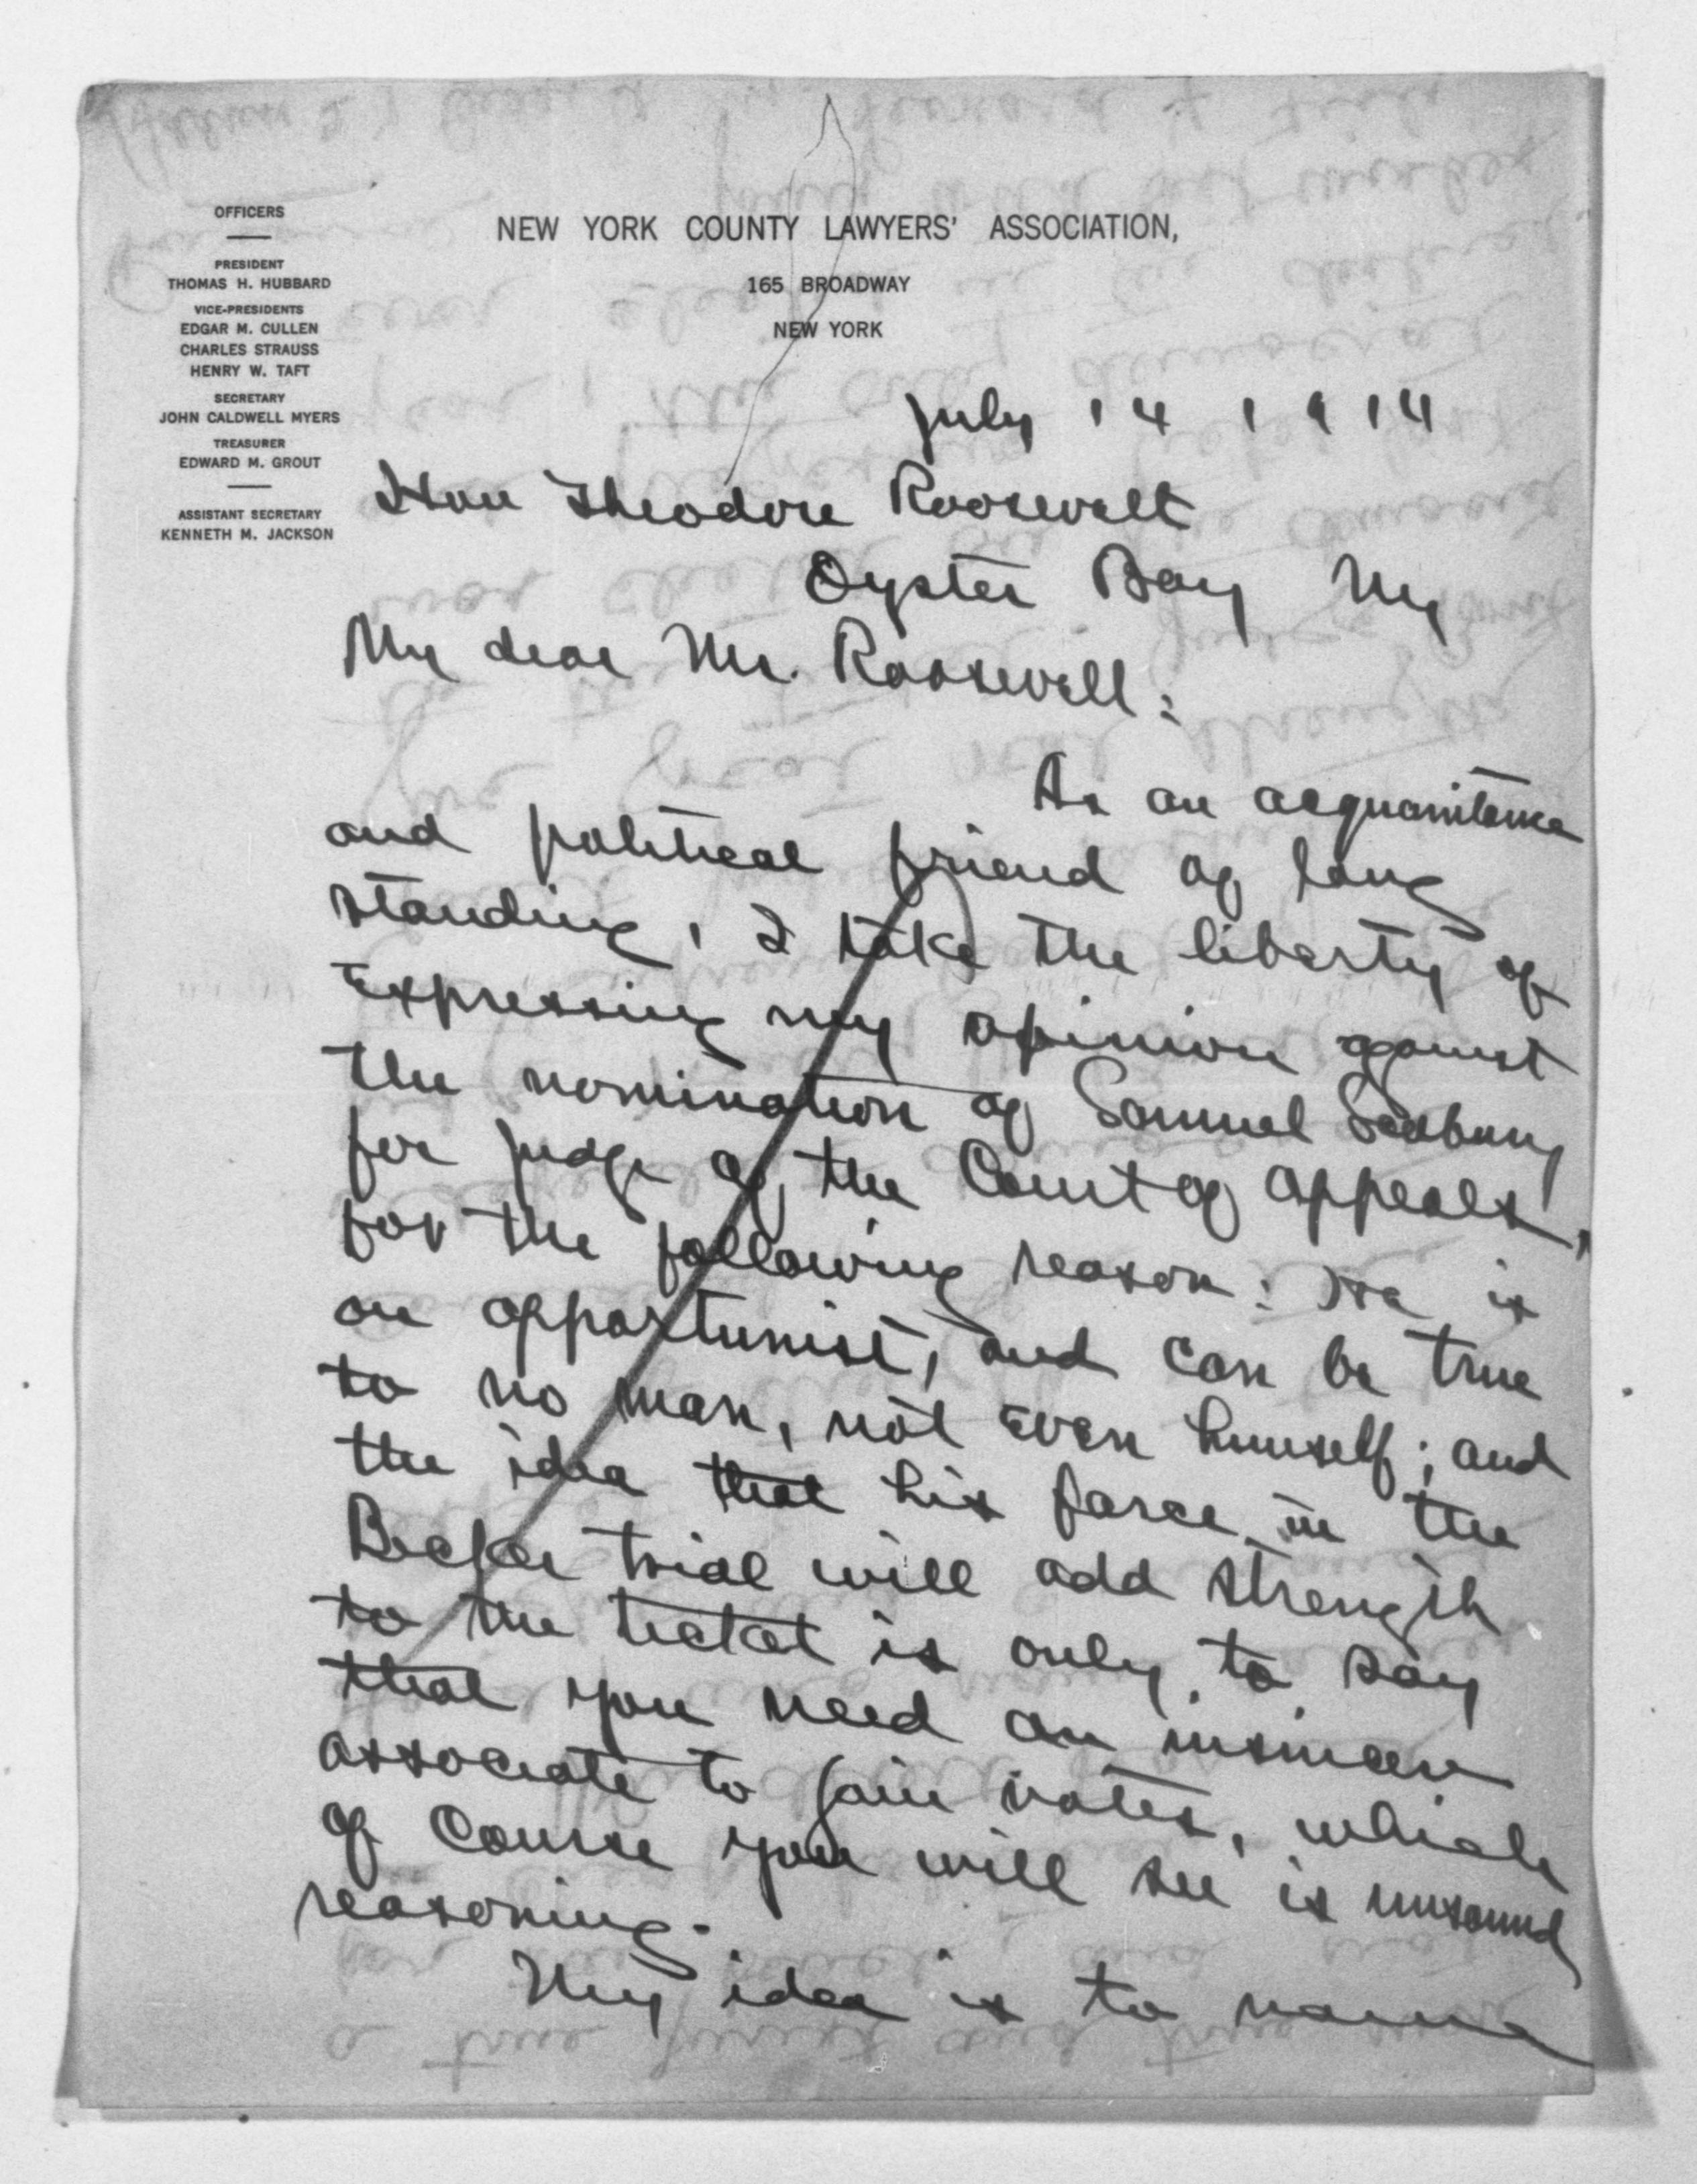 OFFICERS
PRESIDENT
THOMAS H. HUBBARD
VICE-PRESIDENTS
EDGAR M. CULLEN
CHARLES STRAUSS
HENRY W. TAFT
SECRETARY
JOHN CALDWELL MYERS
TREASURER
EDWARD M. GROUT
ASSISTANT SECRETARY
KENNETH M. JACKSON
NEW YORK COUNTY LAWYERS' ASSOCIATION,
165 BROADWAY
NEW YORK
July 14 1914
Hon Theodore Roosevelt
Oyster Bay Ny
My dear Mr. Roosevelt:
As an acquaintance
and political friend of long
standing, I take the liberty of
expressing my opinion against
the nomination of Samuel Seabury
for judge of the Court of Appeals,
for the following reason: He is
an opportunist, and can be true
to no man, not even himself; and
the idea that his farce in the
Becker trial will add strength
to the ticket is only to say
that you need an insincere
associate to gain votes, which
of course you will see is unsound
reasoning.
My idea is to name